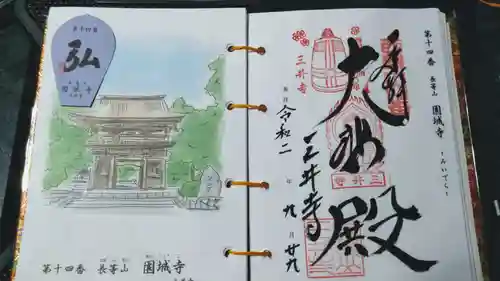 第十四番
弘
第十四番 長等山 園城寺
第十四番 長等山 園城寺
~みいでら~
三井寺
奉拝
大弥殿
令和二年九月廿九
三井寺
三井寺